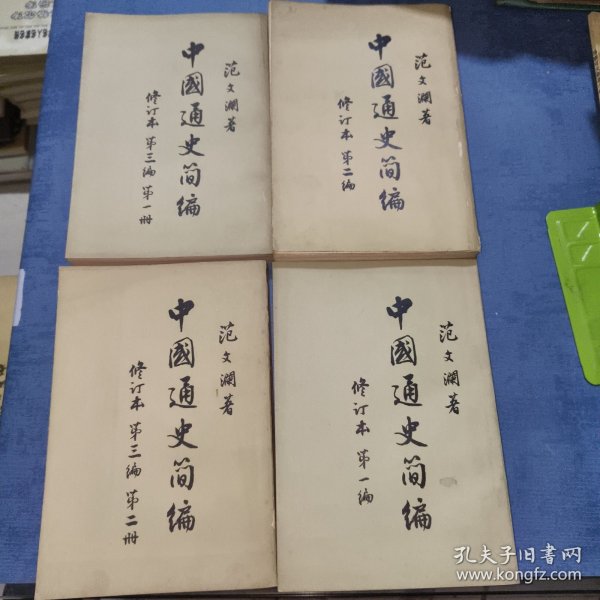 范文瀾著
中國通史简编
修订本 第三编 第一册
范文瀾著
中國通史简编
修订本 第二编
范文瀾著
中國通史简编
修订本 第三编 第二册
范文瀾著
中國通史简编
修订本 第一编
孔夫子旧书网
www.kongfz.com